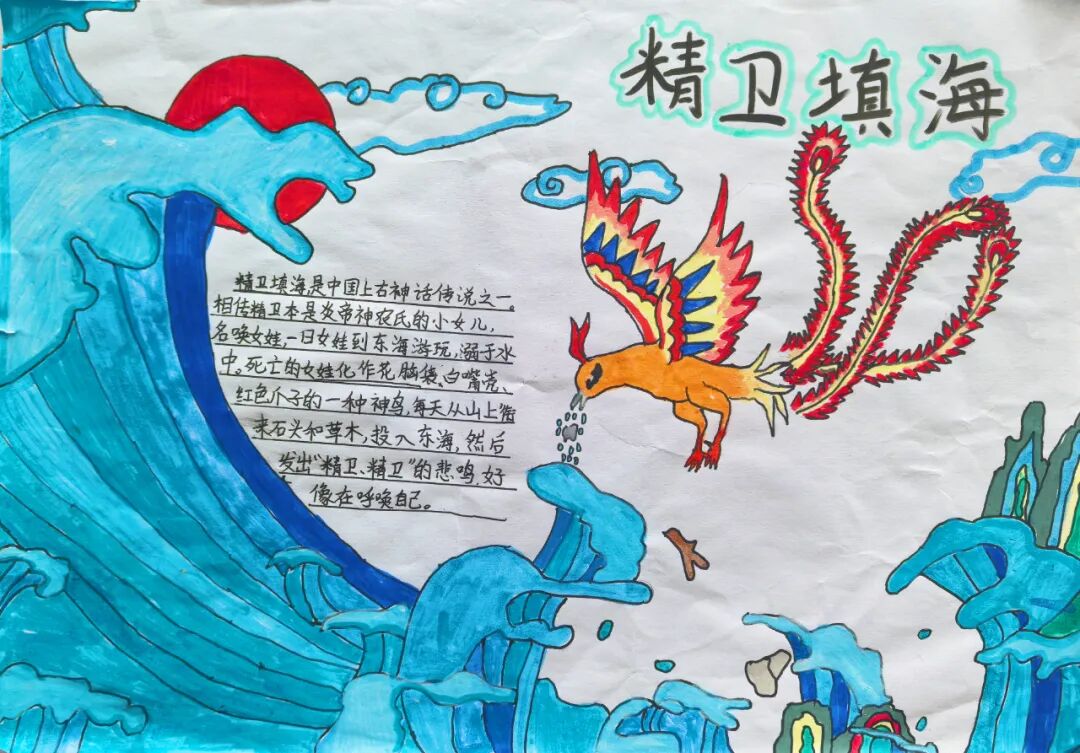 精卫填海
精卫填海是中国上古神话传说之一。
相传精卫本是炎帝神农氏的小女儿，
名唤女娃，一日女娃到东海游玩，溺于水
中。死亡的女娃化作花脑袋、白嘴壳、
红色爪子的一种神鸟，每天从山上衔
来石头和草木，投入东海，然后
发出“精卫、精卫”的悲鸣，好
像在呼唤自己。